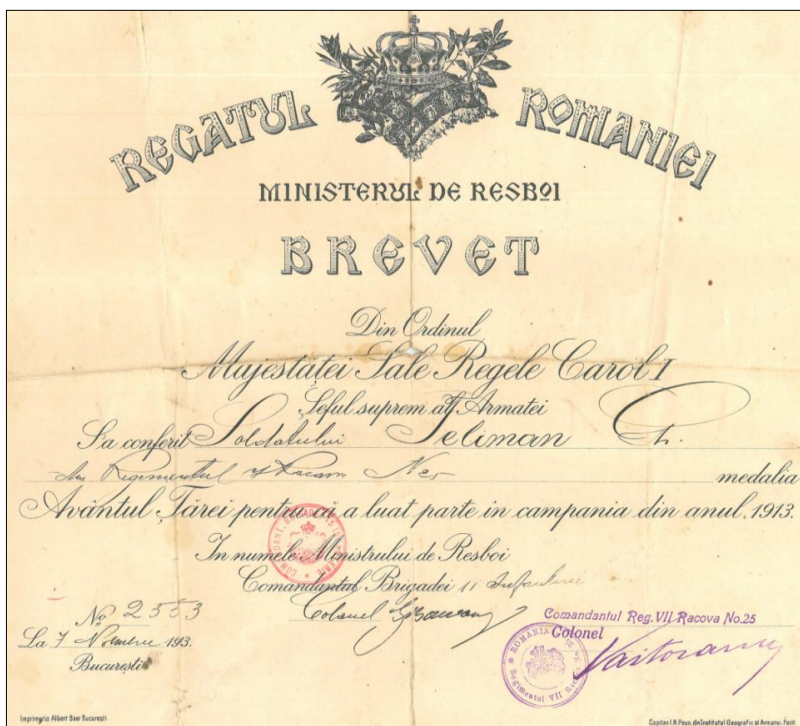 REGATUL ROMANIEI
MINISTERUL DE RESBOI
BREVET
Din Ordinul
Majestăței Sale Regele Carol I
Șeful suprem al Armatei
S'a conferit Soldatului Seliman Gh.
din Regimentul 7 Racova No 25 medalia
Avântul Țărei pentru că a luat parte in campania din anul, 1913.
In numele Ministrului de Resboi
Comandantul Brigadei 11 Infanterie
No 2553
Colonel
Comandantul Reg. VII Racova No.25
La 7 Noembrie 1913.
Colonel
București
ROMANIA
Regimentul VII
Imprimeria Albert Baer București
Capitan I.R. din Institutul Geografic al Armatei, fecit